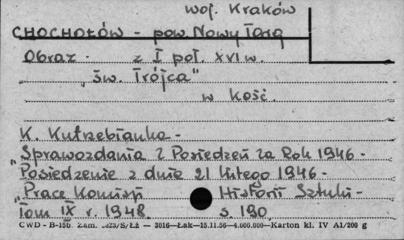 woj. Kraków
CHOCHOŁÓW - pow. Nowy Targ
Obraz - z I poł. XVI w.
„Św. Trójca"
w kość.
K. Kutrzebianka -
„Sprawozdania z Posiedzeń za Rok 1946 -
Posiedzenie z dnia 21 lutego 1946 -
„Prace Komisji Historii Sztuki -
Tom IX r. 1948. s. 190
CWD - B-15b. Zam. /S/Łż — 3016—Łak—15.11.56—4.000.000—Karton kl. IV A1/200 g